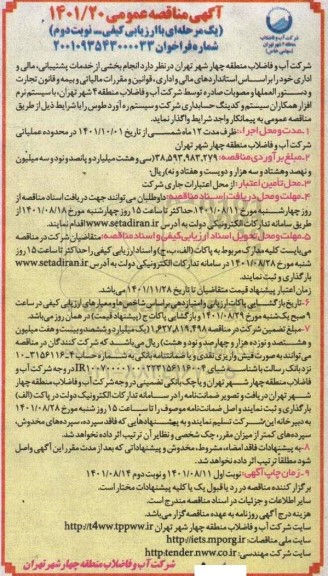 آگهی مناقصه عمومی ۱۴۰۱/۲۰
(یک مرحله‌ای با ارزیابی کیفی - نوبت دوم)
شماره فراخوان ۲۰۰۱۰۹۳۵۴۳۰۰۰۰۳۳
شرکت آب و فاضلاب
منطقه ۴ شهر تهران
شرکت آب و فاضلاب منطقه چهار شهر تهران در نظر دارد انجام بخشی از خدمات پشتیبانی، مالی و
اداری خود را بر اساس استانداردهای مالی و اداری، قوانین و مقررات مالیاتی و بیمه و قانون تجارت
و دستور العملها و مصوبات صادره توسط شرکت آب و فاضلاب منطقه ۴ شهر تهران، با سیستم نرم
افزار همکاران سیستم و کدینگ حسابداری شرکت و سیستم ره آورد طوس را با شرایط ذیل از طریق
مناقصه عمومی به پیمانکار واجد شرایط واگذار نماید.
۱- مدت و محل اجرا: ظرف مدت ۱۲ ماه شمسی از تاریخ ۱۴۰۱/۱۰/۰۱ در محدوده عملیاتی
شرکت آب و فاضلاب منطقه چهار شهر تهران
۲- مبلغ برآوردی مناقصه: ۳۸,۵۹۳,۹۸۳,۲۷۹ (سی و هشت میلیارد و پانصد و نود و سه میلیون
و نهصد و هشتاد و سه هزار و دویست و هفتاد و نه) ریال
۳- محل تأمین اعتبار: از محل اعتبارات جاری شرکت
۴- مهلت و محل دریافت اسناد مناقصه: داوطلبان می‌توانند جهت دریافت اسناد مناقصه از
روز چهارشنبه مورخ ۱۴۰۱/۰۸/۱۱ حداکثر تا ساعت ۱۵ روز چهارشنبه مورخ ۱۴۰۱/۰۸/۱۸ از
طریق سامانه تدارکات الکترونیکی دولت به آدرس www.setadiran.ir اقدام نمایند.
۵- مهلت و محل تحویل اسناد ارزیابی کیفی و اسناد مناقصه: متقاضیان شرکت در مناقصه
می‌بایست کلیه مدارک مربوط به پاکات (الف، ب، ج) و اسناد ارزیابی کیفی را حداکثر تا ساعت ۱۵ روز
شنبه مورخ ۱۴۰۱/۰۸/۲۸ در سامانه تدارکات الکترونیکی دولت به آدرس www.setadiran.ir
بارگذاری و ثبت نمایند.
زمان اعتبار پیشنهاد قیمت متقاضیان تا تاریخ ۱۴۰۱/۱۱/۲۸ می‌باشد.
۶- تاریخ بازگشایی پاکات: ارزیابی و امتیازدهی بر اساس شاخص‌ها و معیارهای ارزیابی کیفی در ساعت
۹ صبح یک‌شنبه مورخ ۱۴۰۱/۰۸/۲۹ و بازگشایی پاکات ج (پیشنهاد قیمت) در همان روز می‌باشد.
۷- مبلغ تضمین شرکت در مناقصه ۱,۶۲۷,۸۱۹,۴۹۸ (یک میلیارد و ششصد و بیست و هفت میلیون
و هشتصد و نوزده هزار و چهارصد و نود و هشت) ریال می‌باشد که شرکت کنندگان در مناقصه
می‌توانند به صورت فیش واریزی نقدی و یا ضمانتنامه بانکی به شماره حساب
نزد بانک رسالت با شناسه شبای در وجه شرکت آب و
فاضلاب منطقه چهار شهر تهران و یا چک بانکی تضمینی در وجه شرکت آب و فاضلاب منطقه چهار
شهر تهران دریافت و تصویر ضمانت‌نامه را در سامانه تدارکات الکترونیک دولت در پاکت (الف)
بارگذاری و ثبت نمایند و اصل ضمانت‌نامه موصوف را تا ساعت ۱۵ روز شنبه مورخ ۱۴۰۱/۰۸/۲۸
به دبیر خانه این شرکت تسلیم نمایند و به پیشنهادهایی که فاقد سپرده، سپرده‌های مخدوش،
سپرده‌های کمتر از میزان مقرر، چک شخصی و نظایر آن ترتیب اثر داده نخواهد شد.
۸- به پیشنهادات فاقد امضاء، مشروط، مخدوش و پیشنهاداتی که بعد از مدت مقرر این آگهی واصل
شود مطلقا ترتیب اثر داده نخواهد شد.
۹- زمان چاپ آگهی: نوبت اول ۱۴۰۱/۰۸/۱۱ و نوبت دوم ۱۴۰۱/۰۸/۱۴
برگزار کننده مناقصه در رد یا قبول یک یا کلیه پیشنهادات مختار است.
سایر اطلاعات و جزئیات در اسناد مناقصه مندرج است.
هزینه درج آگهی روزنامه به عهده مناقصه گزار می‌باشد.
سایت شرکت آب و فاضلاب منطقه چهار شهر تهران http://t4ww.tppww.ir
سایت ملی مناقصات: http://iets.mporg.ir
سایت شرکت مهندسی: http:tender.nww.co.ir
شرکت آب و فاضلاب منطقه چهار شهر تهران